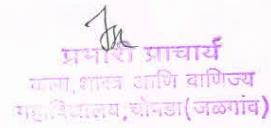 प्रभारी प्राचार्य
कला, शास्त्र आणि वाणिज्य
महाविद्यालय, चोपडा (जळगांव)